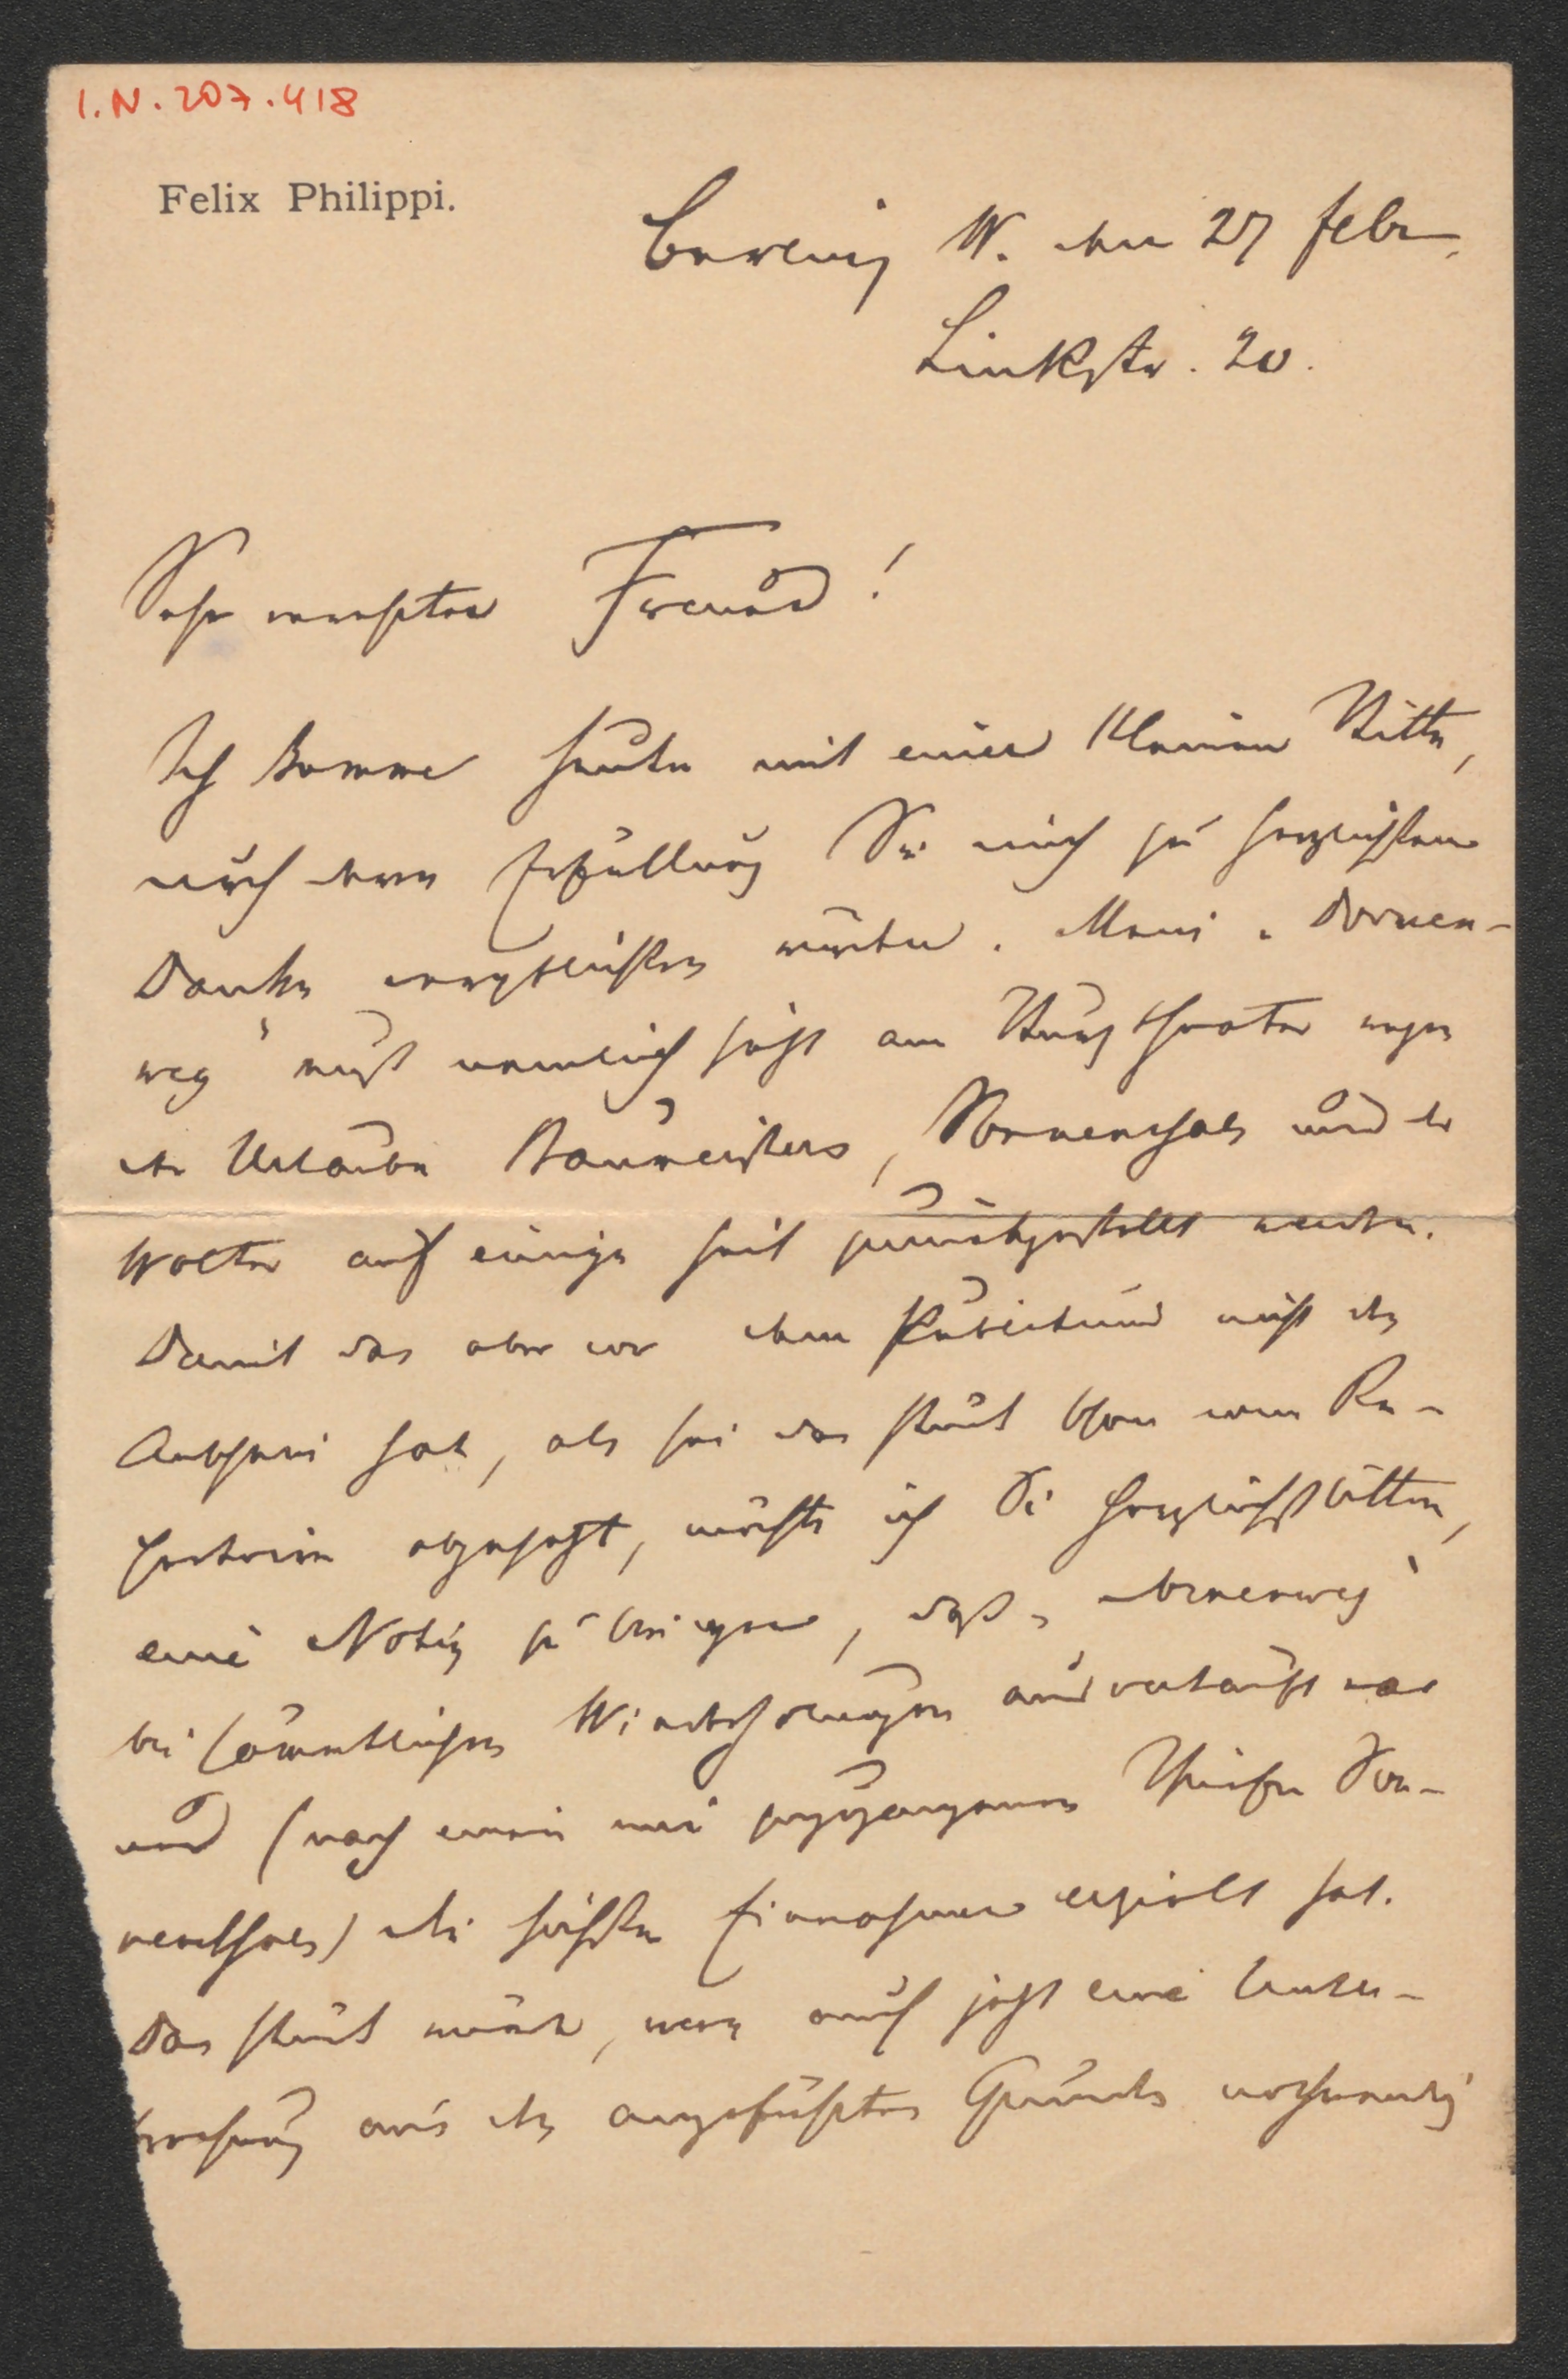 I.N. 207.418
Felix Philippi.
Berlin W. den 27 Febr.
Linkstr. 20.
Sehr verehrter Freund!
Ich komme heute mit einer kleinen Bitte,
durch deren Erfüllung Sie mich zu herzlichstem
Danke verpflichten würden. Mein „Dornen-
weg" muß nemlich jetzt am Burgtheater wegen
der Urlaube Baumeisters, Sonnenthals und der
Wolter auf einige Zeit zurückgestellt werden.
Damit das aber vor dem Publikum nicht den
Anschein hat, als sei das Stück schon vom Re-
pertoire abgesetzt, möchte ich Sie herzlichst bitten,
eine Notiz zu bringen, daß „Dornenweg"
bei sämmtlichen Wiederholungen ausverkauft war
und (nach einem mir zugegangenen Briefe Son-
nenthals) die höchsten Einnahmen erzielt hat.
Das Stück würde, wenn auch jetzt eine Unter-
brechung aus den angeführten Gründen nothwendig